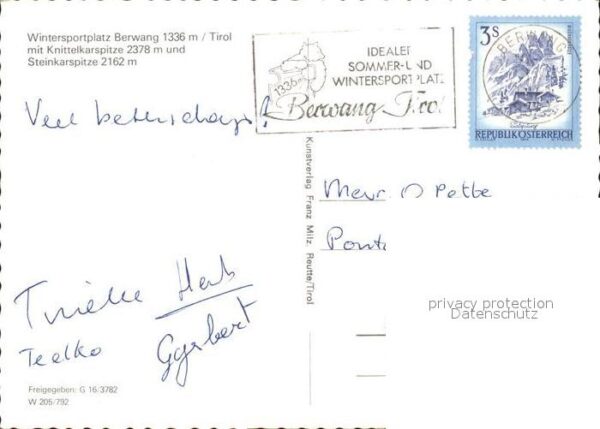 Wintersportplatz Berwang 1336 m / Tirol
mit Knittelkarspitze 2378 m und
Steinkarspitze 2162 m
IDEALER
SOMMER-UND
WINTERSPORTPLATZ
1336m
Berwang Tirol
3S
BERWANG
REPUBLIK ÖSTERREICH
Veel beterschap!
Kunstverlag Franz Milz, Reutte/Tirol
Mevr. D Pette
Pont
Tinéke Herb
Tealko Ggerbert
privacy protection
Datenschutz
Freigegeben: G 16/3782
W 205/792